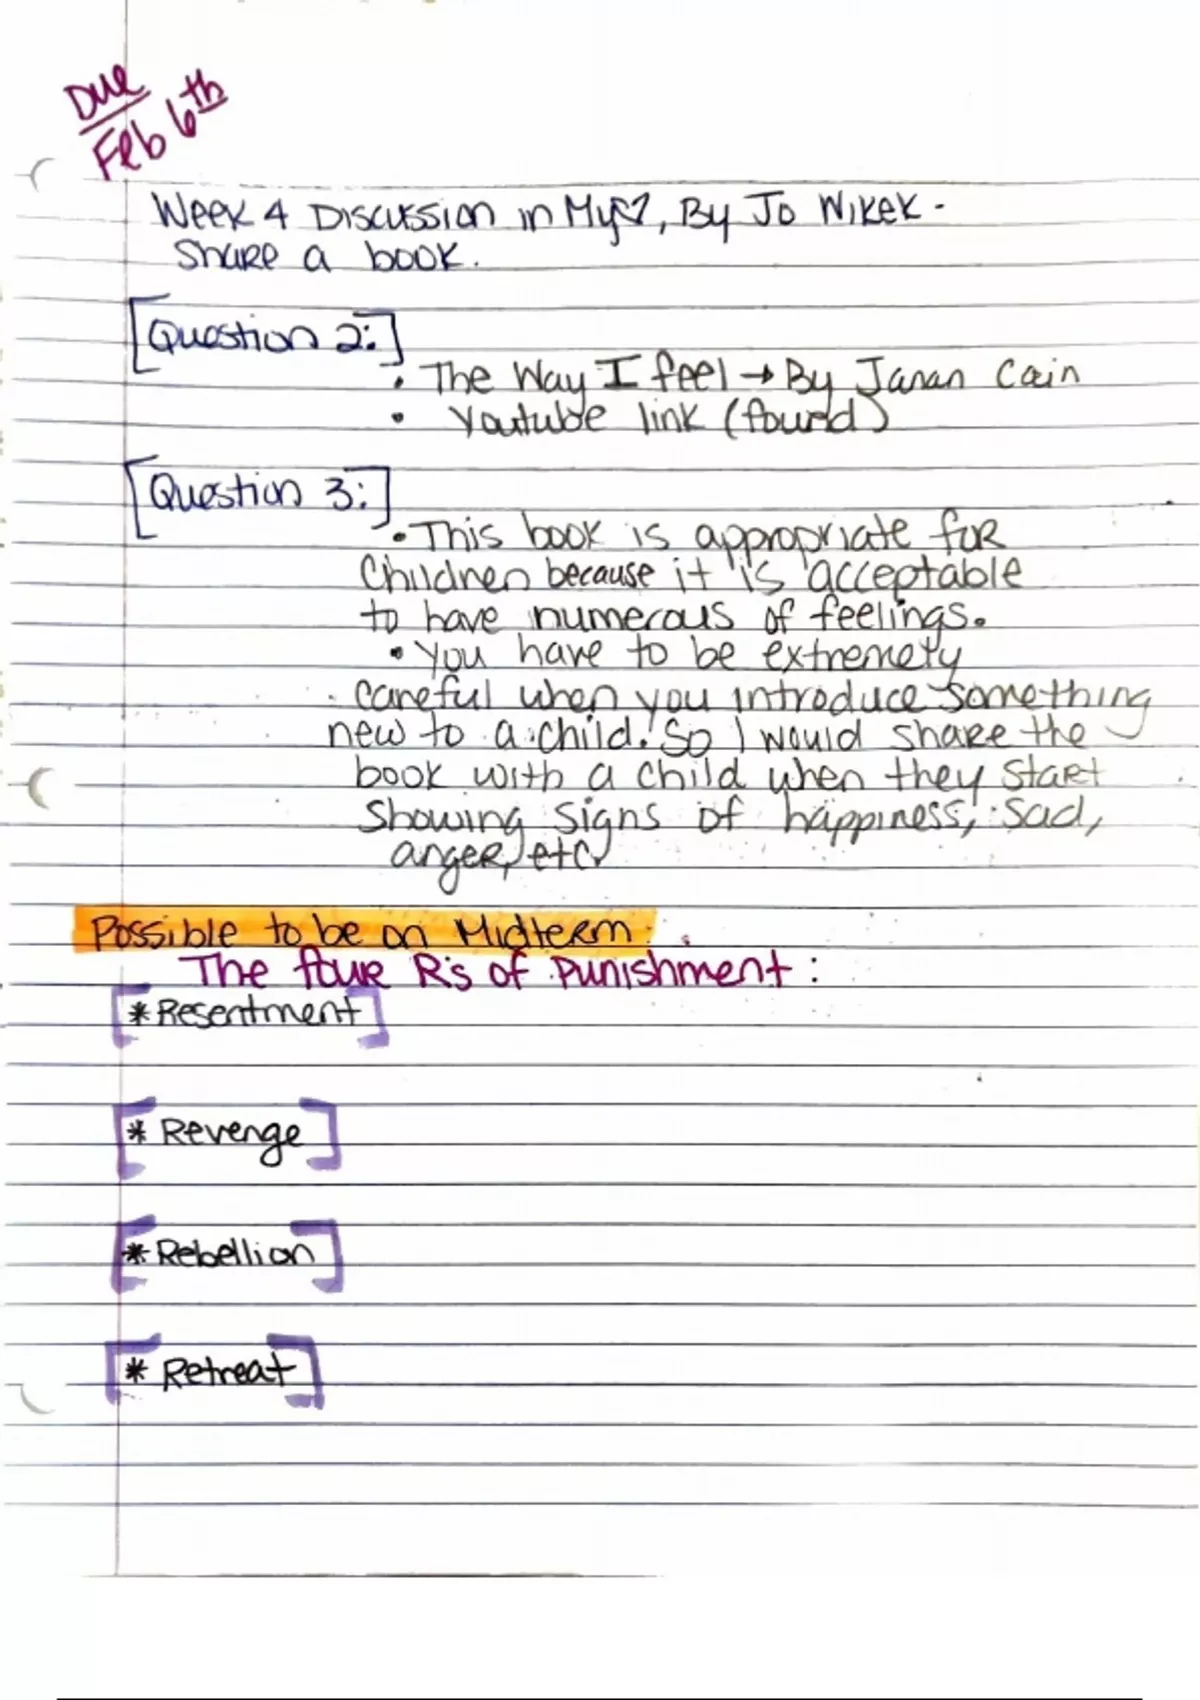 Due
Feb 6th
Week 4 Discussion in My, By Jo Wikek -
Share a book.
[Question 2:]
• The Way I feel → By Janan Cain
• Youtube link (found)
[Question 3:]
• This book is appropriate for
Children because it is acceptable
to have numerous of feelings.
• You have to be extremely
careful when you introduce something
new to a child. So I would share the
book with a child when they start
showing signs of happiness, sad,
anger, etc.
Possible to be on Midterm.
The four R's of Punishment:
[* Resentment]
[* Revenge]
[* Rebellion]
[* Retreat]